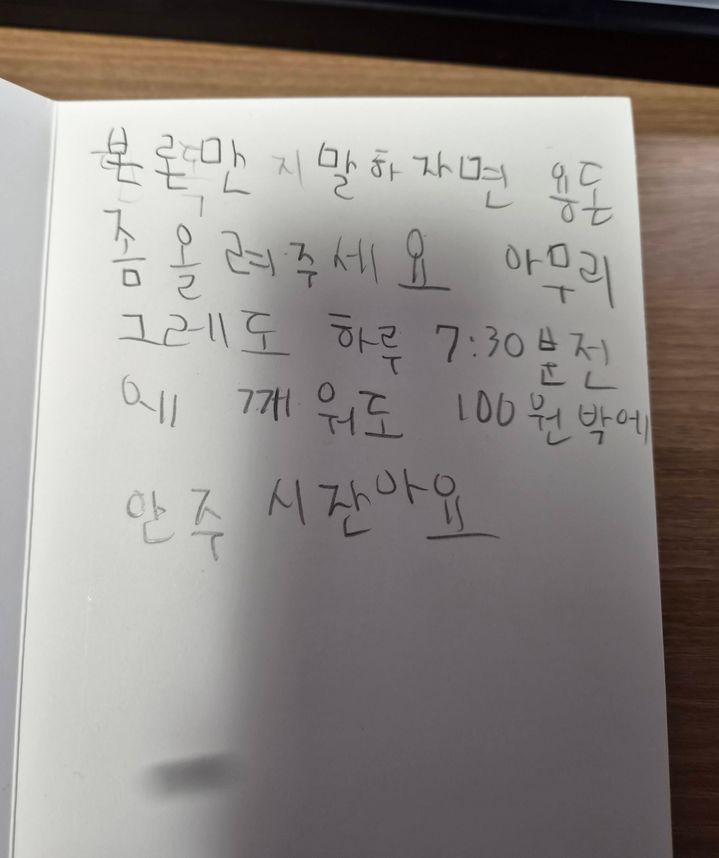 본론만 지 말하자면 용돈
좀 올려주세요 아무리
그레도 하루 7:30분전
에 깨워도 100원박에
안주 시잔아요